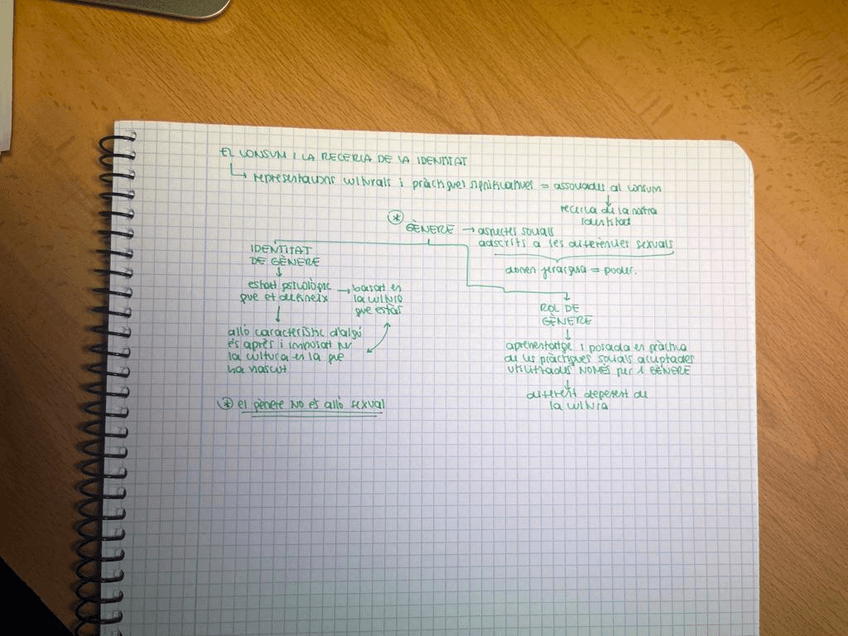 EL CONSUM I LA RECERCA DE LA IDENTITAT
↳ representacions culturals i pràctiques significatives = associades al consum
↓
recerca de la nostra
identitat
* GÈNERE → aspectes socials
adscrits a les diferències sexuals
donen jerarquia = poder.
IDENTITAT
DE GÈNERE
↓
estat psicològic → basat en
que et defineix la cultura
que estàs
↓
allò característic d'algú
és après i imposat per
la cultura en la que
ha nascut
ROL DE
GÈNERE
↓
aprenentatge i posada en pràctica
de les pràctiques socials acceptades
utilitzades NOMÉS per 1 GÈNERE
↓
diferent depenent de
la cultura
* el gènere NO és allò sexual